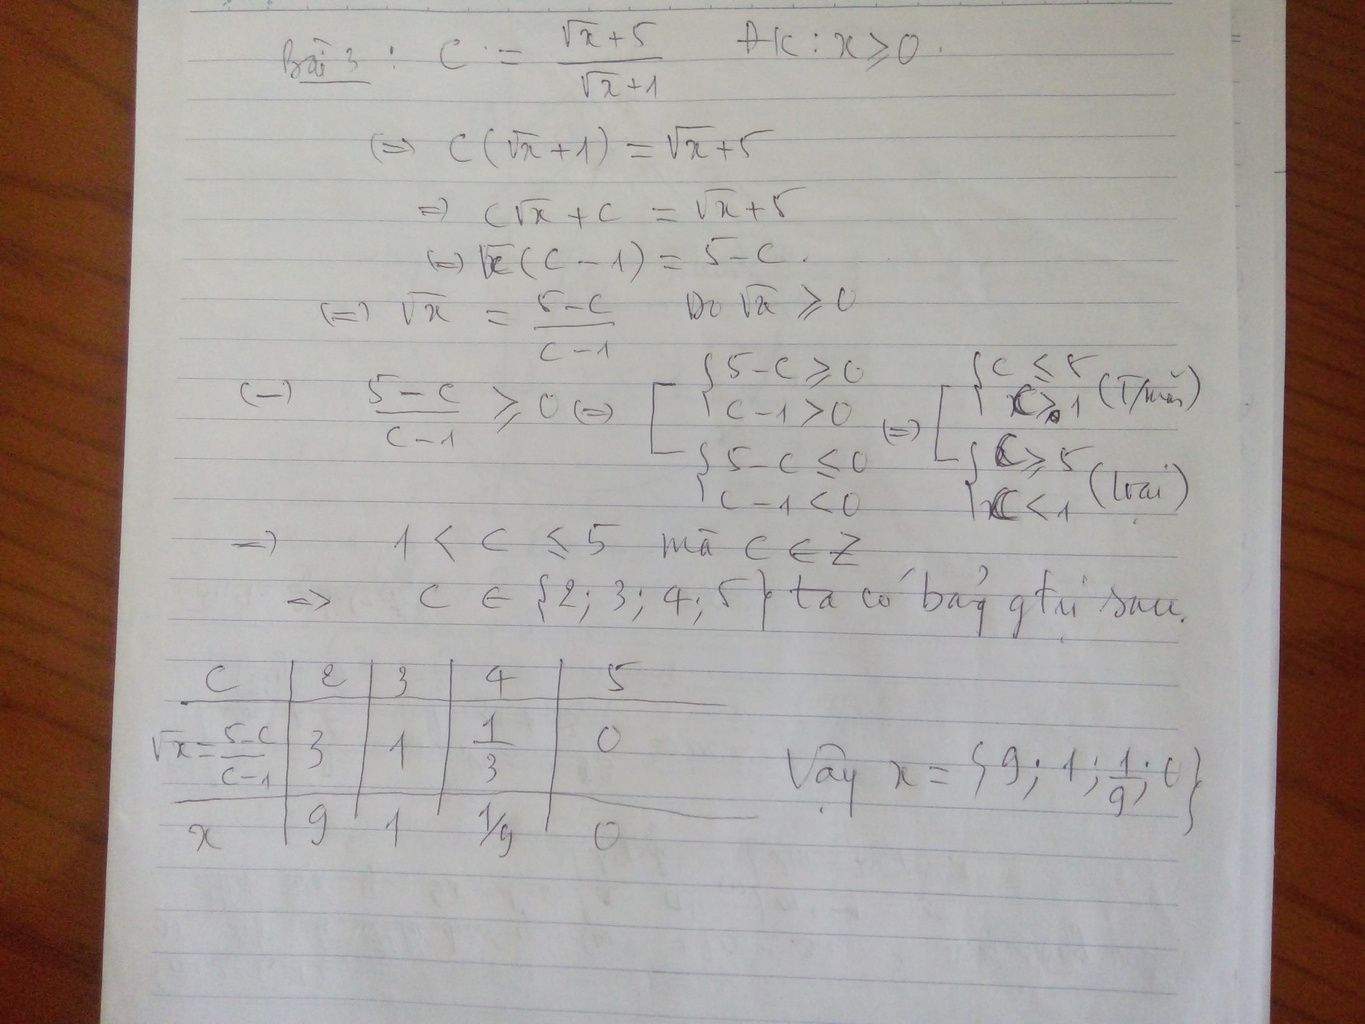 Bài 3 : C = (√x+5)/(√x+1) ĐK : x ≥ 0.
(=) C(√x+1) = √x+5
=) C√x + C = √x+5
(=) √x(C−1) = 5−C.
(=) √x = (5−C)/(C−1) Do √x ≥ 0
(=) (5−C)/(C−1) ≥ 0 (=) [ { 5−C ≥ 0 ; C−1 > 0 ; { 5−C ≤ 0 ; C−1 < 0 (=) [ { C ≤ 5 ; C > 1 (T/mãn) ; { C ≥ 5 ; C < 1 (loại)
=) 1 < C ≤ 5 mà C ∈ Z
=> C ∈ {2; 3; 4; 5} ta có bảg gtrị sau.
C 2 3 4 5
√x = (5−C)/(C−1) 3 1 1/3 0
x 9 1 1/9 0
Vậy x = {9; 1; 1/9; 0}